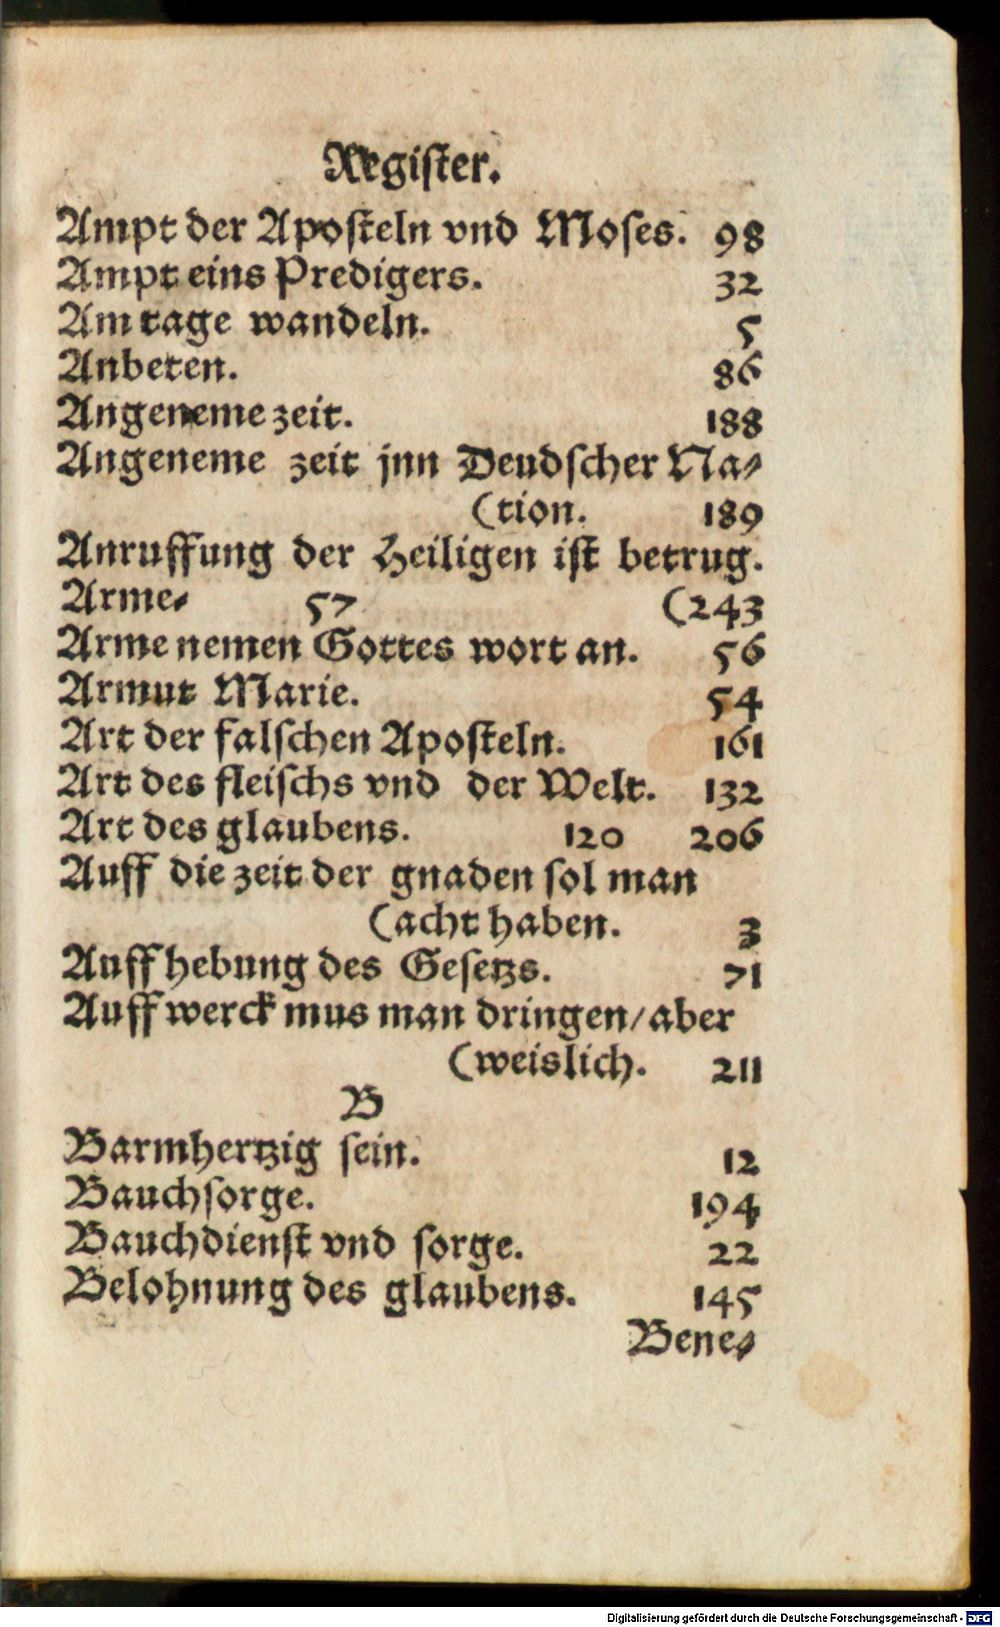 Register.
Ampt der Apoſteln vnd Moſes. 98
Ampt eins Predigers. 32
Am tage wandeln. 5
Anbeten. 86
Angeneme zeit. 188
Angeneme zeit jnn Deudſcher Na⸗
(tion. 189
Anruffung der Heiligen iſt betrug.
Arme⸗ 57 (243
Arme nemen Gottes wort an. 56
Armut Marie. 54
Art der falſchen Apoſteln. 161
Art des fleiſchs vnd der Welt. 132
Art des glaubens. 120 206
Auff die zeit der gnaden ſol man
(acht haben. 3
Auffhebung des Geſetzs. 71
Auff werck mus man dringen/ aber
(weislich. 211
B
Barmhertzig ſein. 12
Bauchſorge. 194
Bauchdienſt vnd ſorge. 22
Belohnung des glaubens. 145
Bene⸗
Digitalisierung gefördert durch die Deutsche Forschungsgemeinschaft - DFG